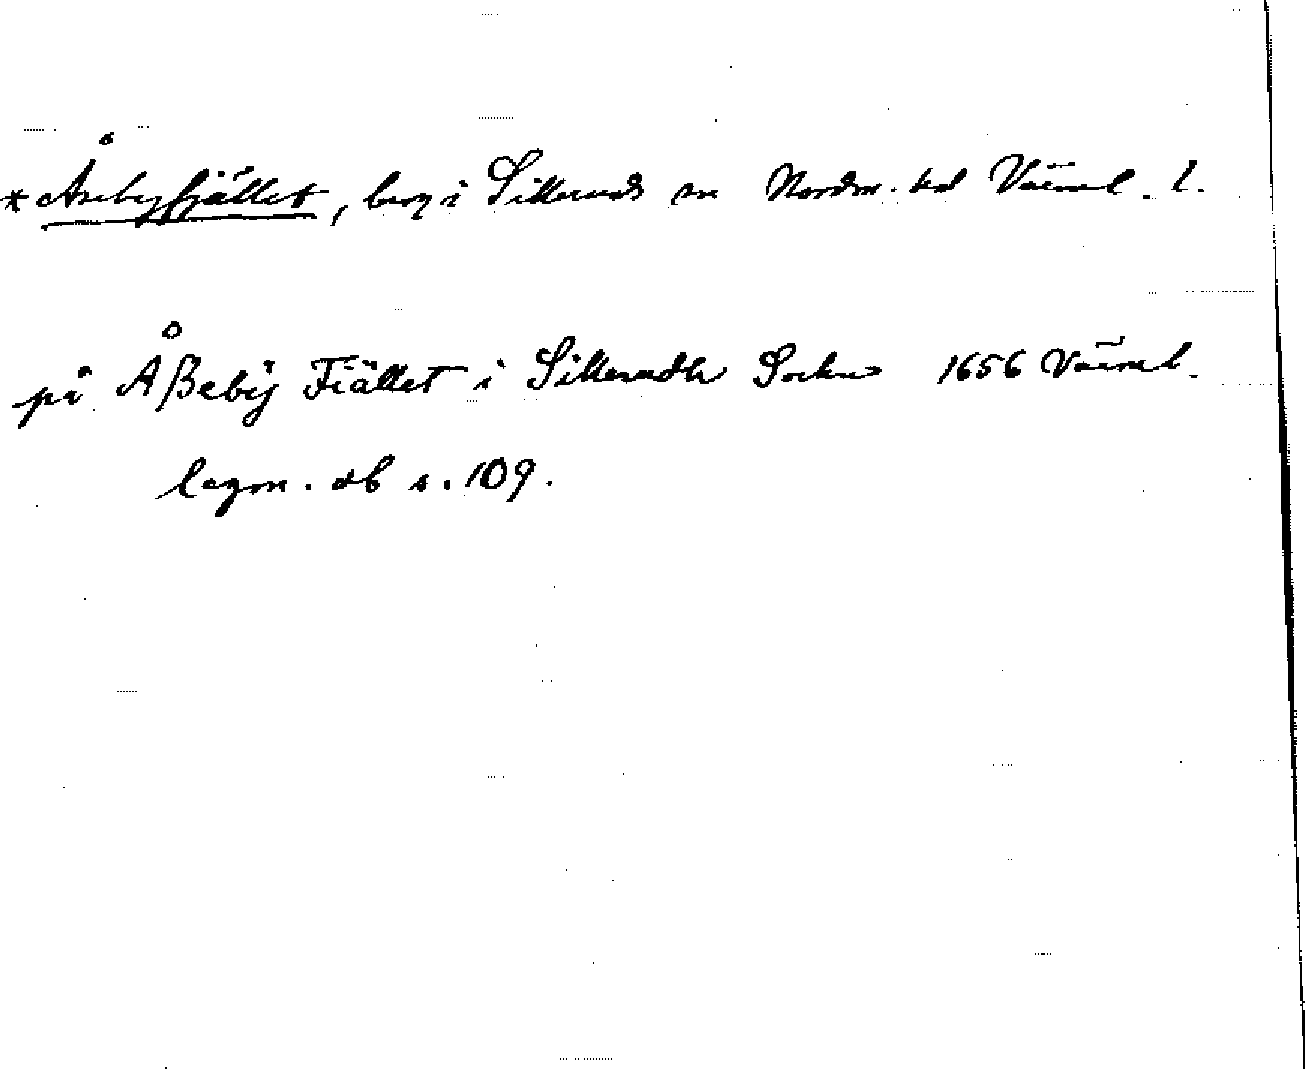 * Åsebyfjället, berg i Silleruds sn Nordm. hd Värml. l.
på Åßebÿ Fiället i Sillerudh Sochn 1656 Värml.
lagm. db s. 109.